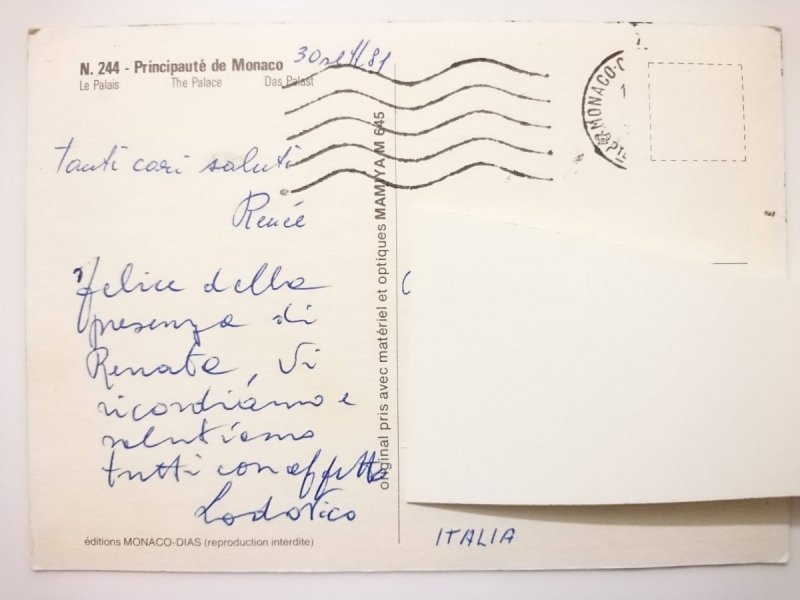 N. 244 - Principauté de Monaco
Le Palais The Palace Das Palast
MONACO-
tanti cari saluti
Renée
felice della
presenza di
Renata, Vi
ricordiamo e
salutiamo
tutti con affetto
Lodovico
original pris avec matériel et optiques MAMIYA M 645
ITALIA
éditions MONACO-DIAS (reproduction interdite)